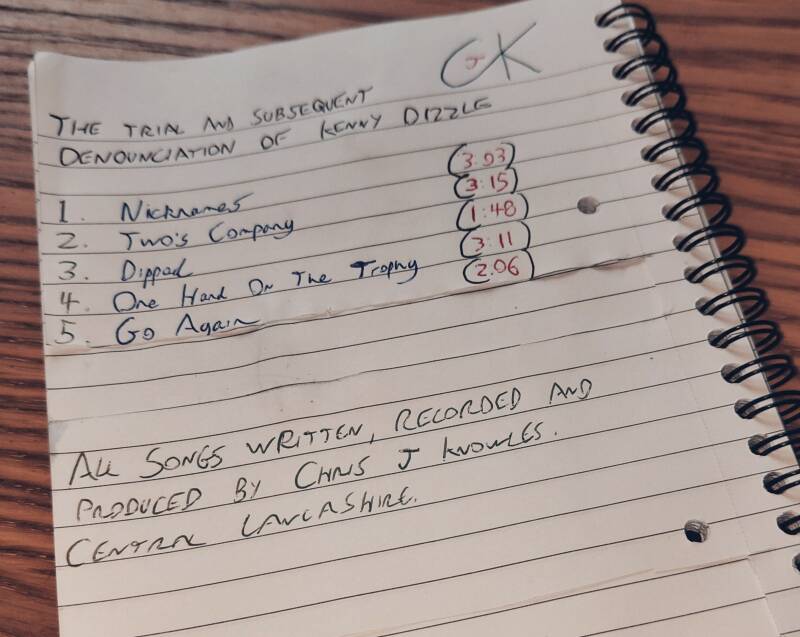 CJK
THE TRIAL AND SUBSEQUENT
DENOUNCIATION OF KENNY DIZZLE
1. Nicknames (3:03)
2. Two's Company (3:15)
3. Dippad (1:48)
4. One Hand On The Trophy (3:11)
5. Go Again (2.06)
ALL SONGS WRITTEN, RECORDED AND
PRODUCED BY CHRIS J KNOWLES.
CENTRAL LANCASHIRE.